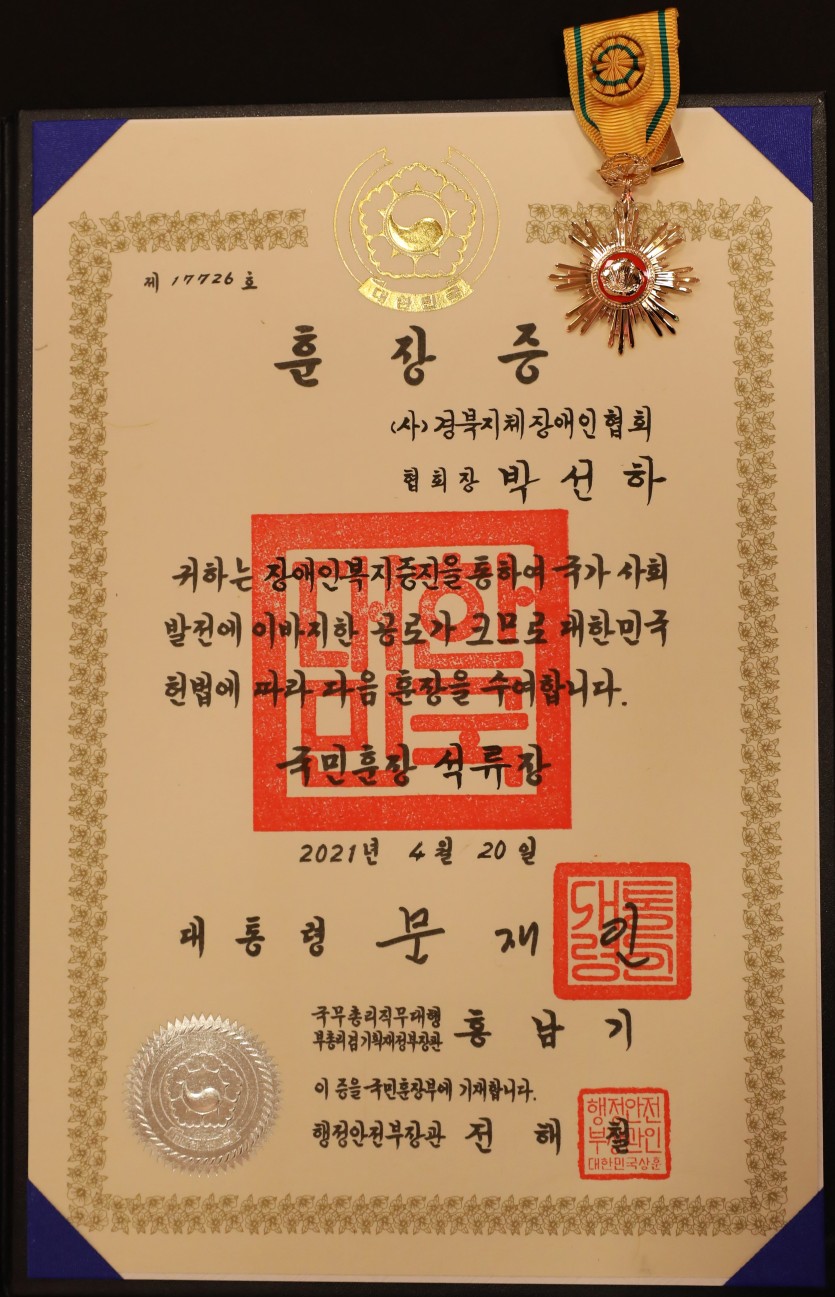 대한민국
제 17726 호
훈장증
(사)경북지체장애인협회
협회장 박선하
귀하는 장애인복지증진을 통하여 국가 사회
발전에 이바지한 공로가 크므로 대한민국
헌법에 따라 다음 훈장을 수여합니다.
대한
민국
국민훈장 석류장
2021년 4월 20일
대통령 문재인
대통
령인
국무총리직무대행
부총리겸기획재정부장관 홍남기
이 증을 국민훈장부에 기재합니다.
행정안전부장관 전해철
행정안전
부장관인
대한민국상훈